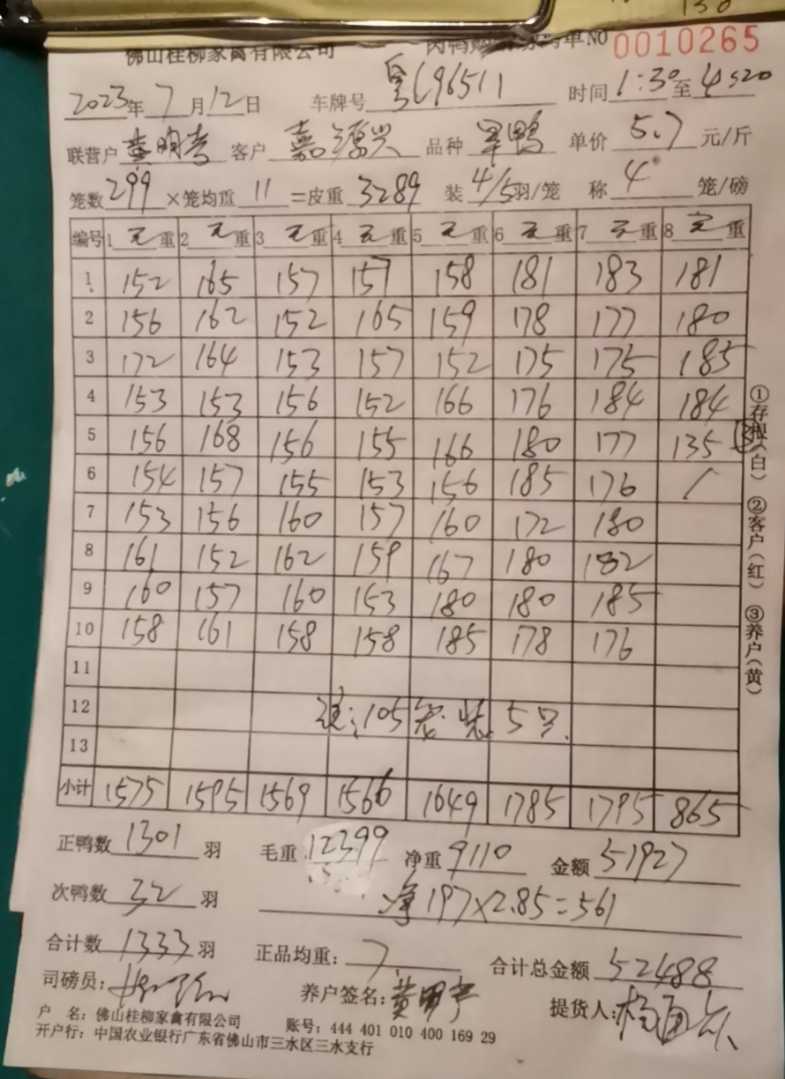 130
佛山桂柳家禽有限公司 肉鸭购 单NO 0010265
2023年7月12日 车牌号 粤 69651 时间1:30至4:20
联营户 黄明 客户 嘉源兴 品种 旱鸭 单价 5.7 元/斤
笼数 299 ×笼均重 11 =皮重 3289 装 4/5羽/笼 称 4 笼/磅
编号 1 毛重 2 毛重 3 毛重 4 毛重 5 毛重 6 毛重 7 毛重 8 毛重
1 152 165 157 157 158 181 183 181
2 156 162 152 165 159 178 177 180
3 172 164 153 157 152 175 175 185
4 153 153 156 152 166 176 184 184
5 156 168 156 155 166 180 177 135
6 154 157 155 153 156 185 176 /
7 153 156 160 157 160 172 180
8 161 152 162 159 167 180 182
9 160 157 160 153 180 180 185
10 158 161 158 158 185 178 176
11
12 注:105笼 装 5只.
13
小计 1575 1595 1569 1566 1649 1785 1795 865
①存根(白) ②客户(红) ③养户(黄)
正鸭数 1301 羽 毛重 12399 净重 9110 金额 51927
次鸭数 32 羽 净197×2.85=561
合计数 1333 羽 正品均重: 7. 合计总金额 52488
司磅员: 养户签名: 黄明 提货人: 杨
户 名: 佛山桂柳家禽有限公司 账号: 444 401 010 400 169 29
开户行: 中国农业银行广东省佛山市三水区三水支行